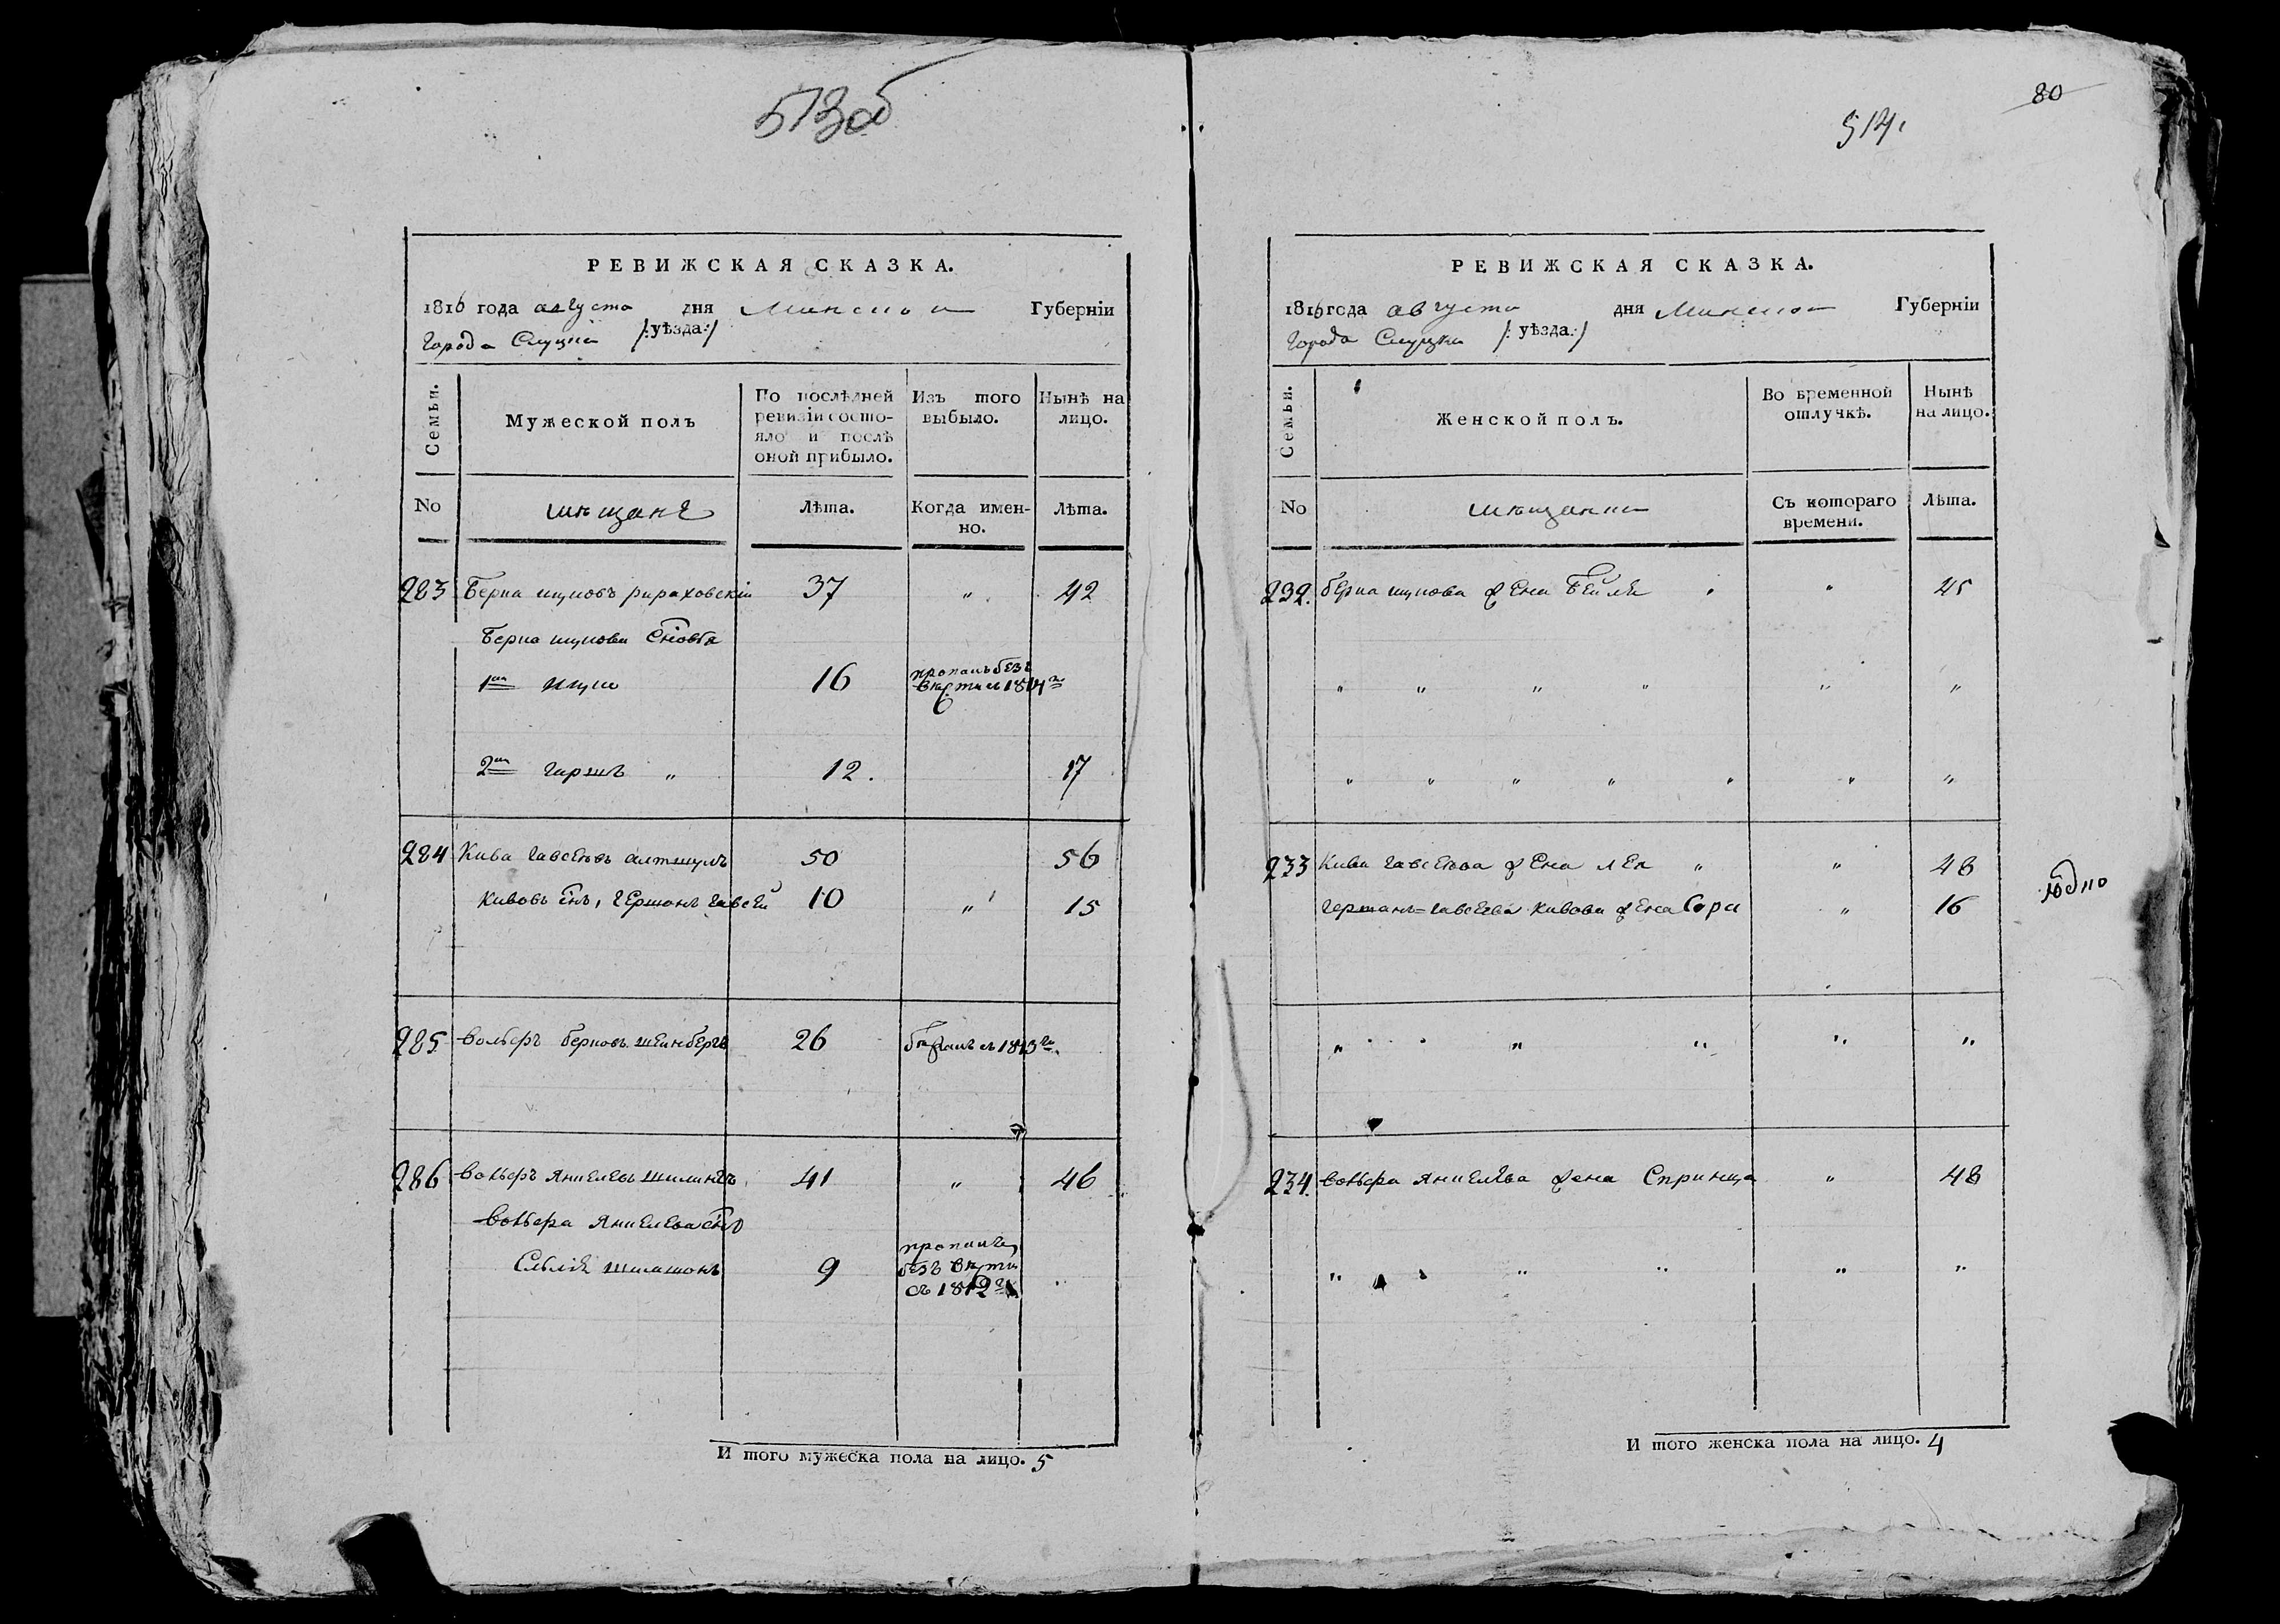 513об
РЕВИЖСКАЯ СКАЗКА.
1816 года августа дня Минской Губерніи
города Слуцка /:уѣзда:/
Семьи.
Мужеской полъ
По послѣдней ревизіи состояло и послѣ оной прибыло.
Изъ того выбыло.
Нынѣ на лицо.
No
мѣщане
Лѣта.
Когда именно.
Лѣта.
283 Берка ицковъ 37 " 42
Берка ицкова сновья
1й ицко 16 пропалъ без вѣсти съ 1814го
2й " 12. 17
284 Кива Евсеевъ алтшулъ 50 56
Кивовъ снъ, гершонъ 10 " 15
285 Вольфъ берковъ шеинбергъ 26 съ 1813го
286 Вольфъ Янкелевъ 41 " 46
Вольфа Янкелева снъ
9 пропалъ безъ вѣсти съ 1812го
И того мужеска пола на лицо. 5
80
514.
РЕВИЖСКАЯ СКАЗКА.
1816 года августа дня Минской Губерніи
города Слуцка /:уѣзда:/
Семьи.
Женской полъ.
Во временной отлучкѣ.
Нынѣ на лицо.
No
мѣщанки
Съ котораго времени.
Лѣта.
232. берка ицкова жена Бейля " 45
" " " " " "
" " " " " " "
233 Кива жена Лея " " 48
Кивова жена Сора " 16
" " " " "
234. Вольфа Янкелева жена Спринца " 48
" " " " "
И того женска пола на лицо. 4